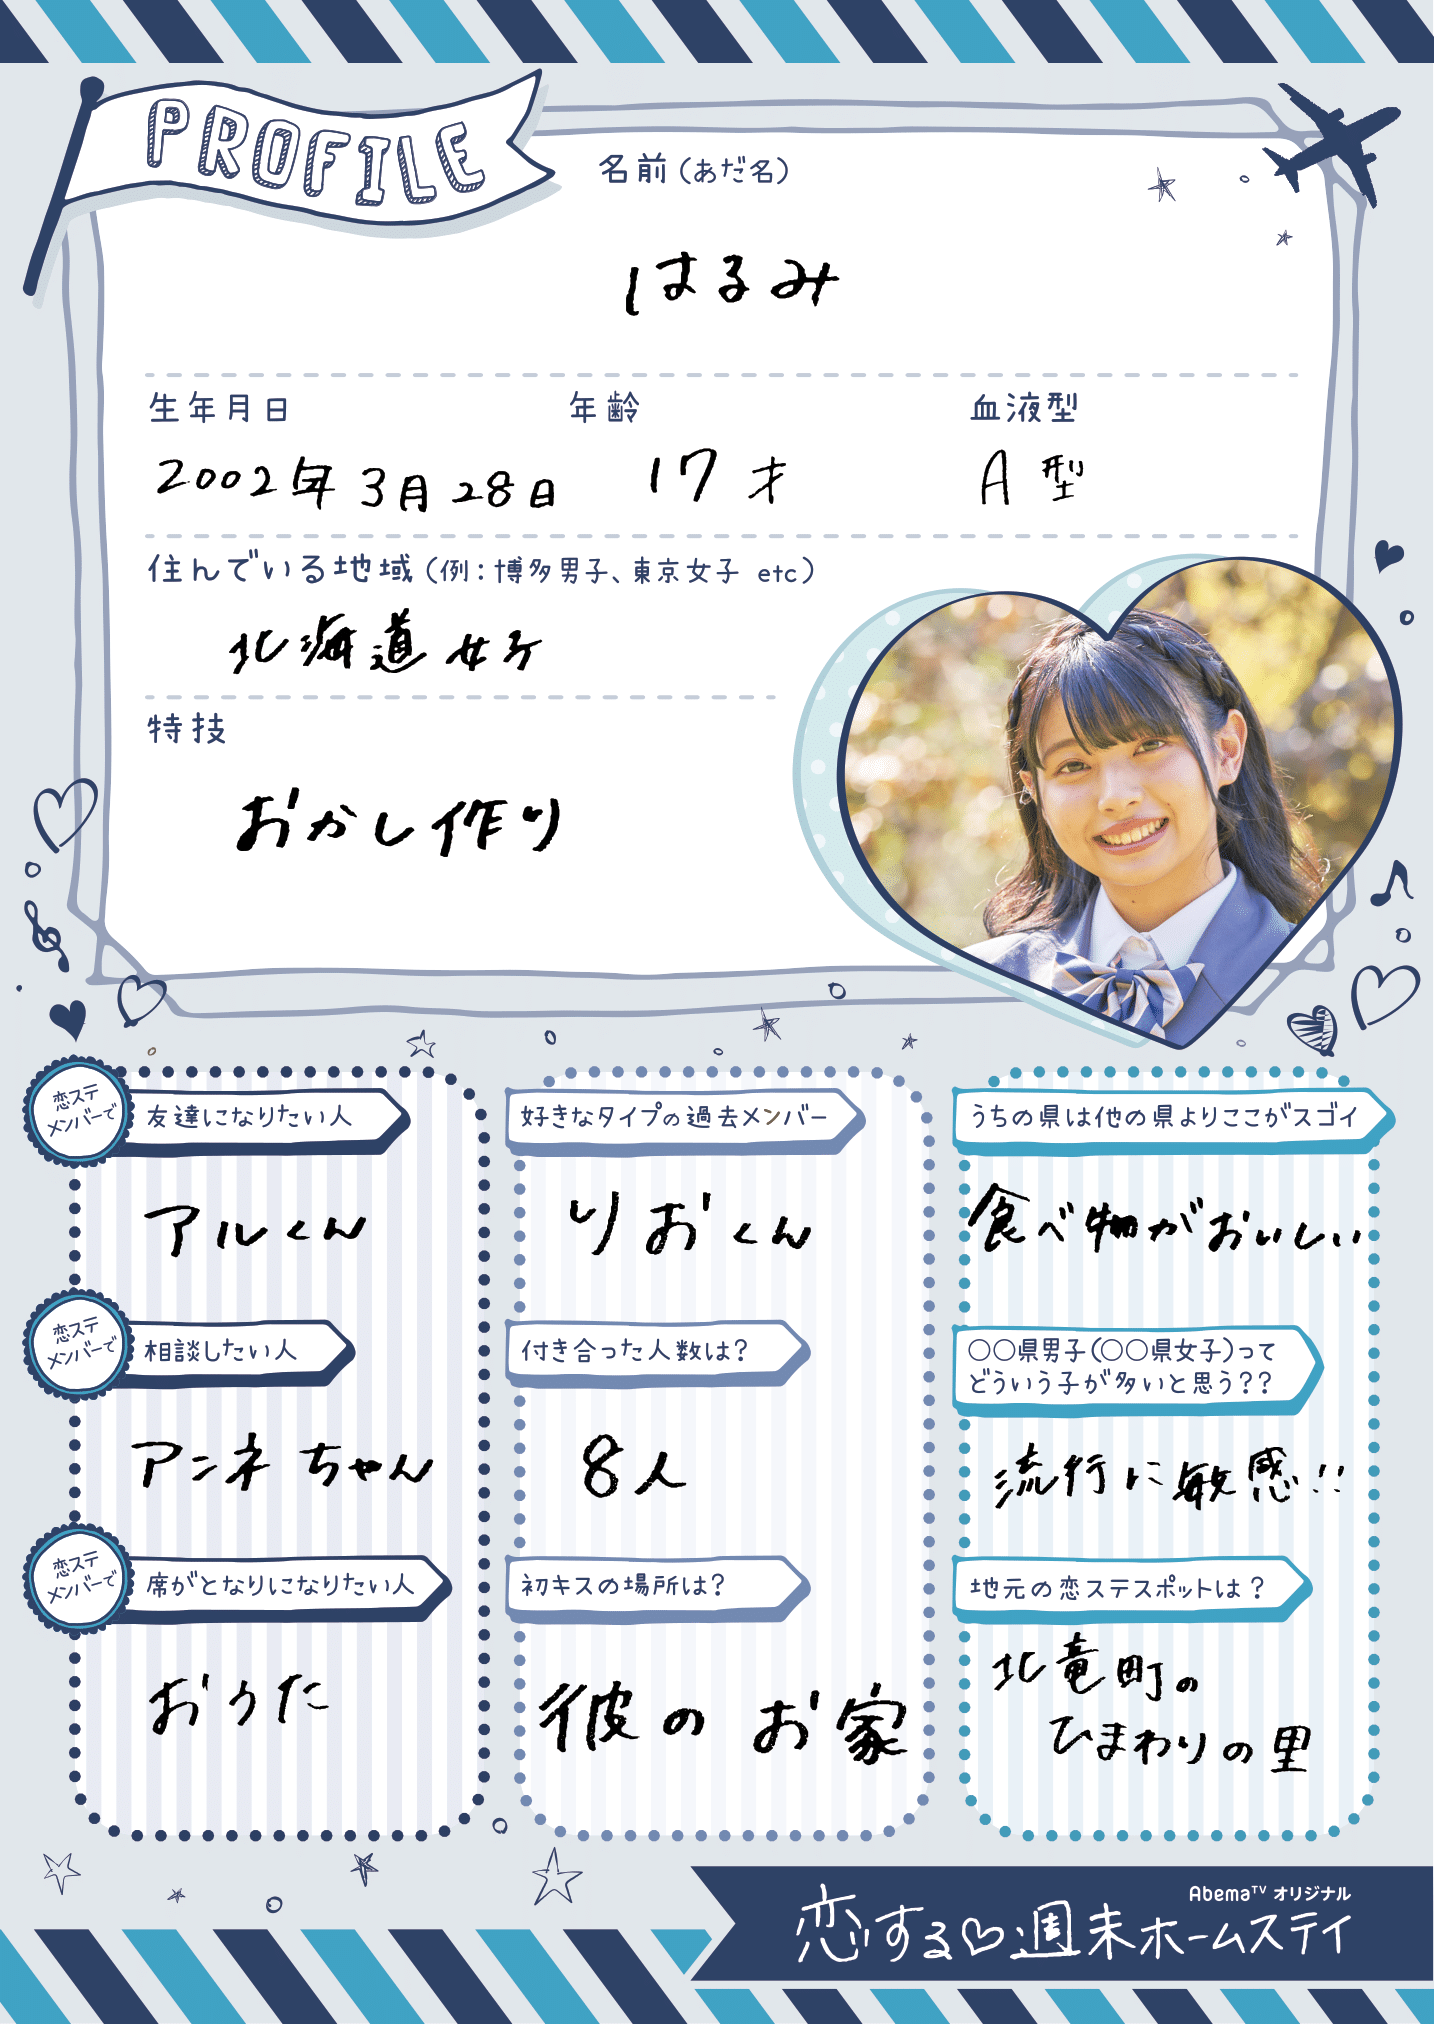 PROFILE
名前（あだ名）
はるみ
生年月日
年齢
血液型
2002年3月28日
17才
A型
住んでいる地域（例：博多男子、東京女子 etc）
北海道女子
特技
おかし作り
恋ステ
メンバーで
友達になりたい人
アルくん
恋ステ
メンバーで
相談したい人
アンネちゃん
恋ステ
メンバーで
席がとなりになりたい人
おうた
好きなタイプの過去メンバー
りおくん
付き合った人数は？
8人
初キスの場所は？
彼のお家
うちの県は他の県よりここがスゴイ
食べ物がおいしい
○○県男子（○○県女子）って
どういう子が多いと思う？？
流行に敏感!!
地元の恋ステスポットは？
北竜町の
ひまわりの里
AbemaTV オリジナル
恋する♡週末ホームステイ